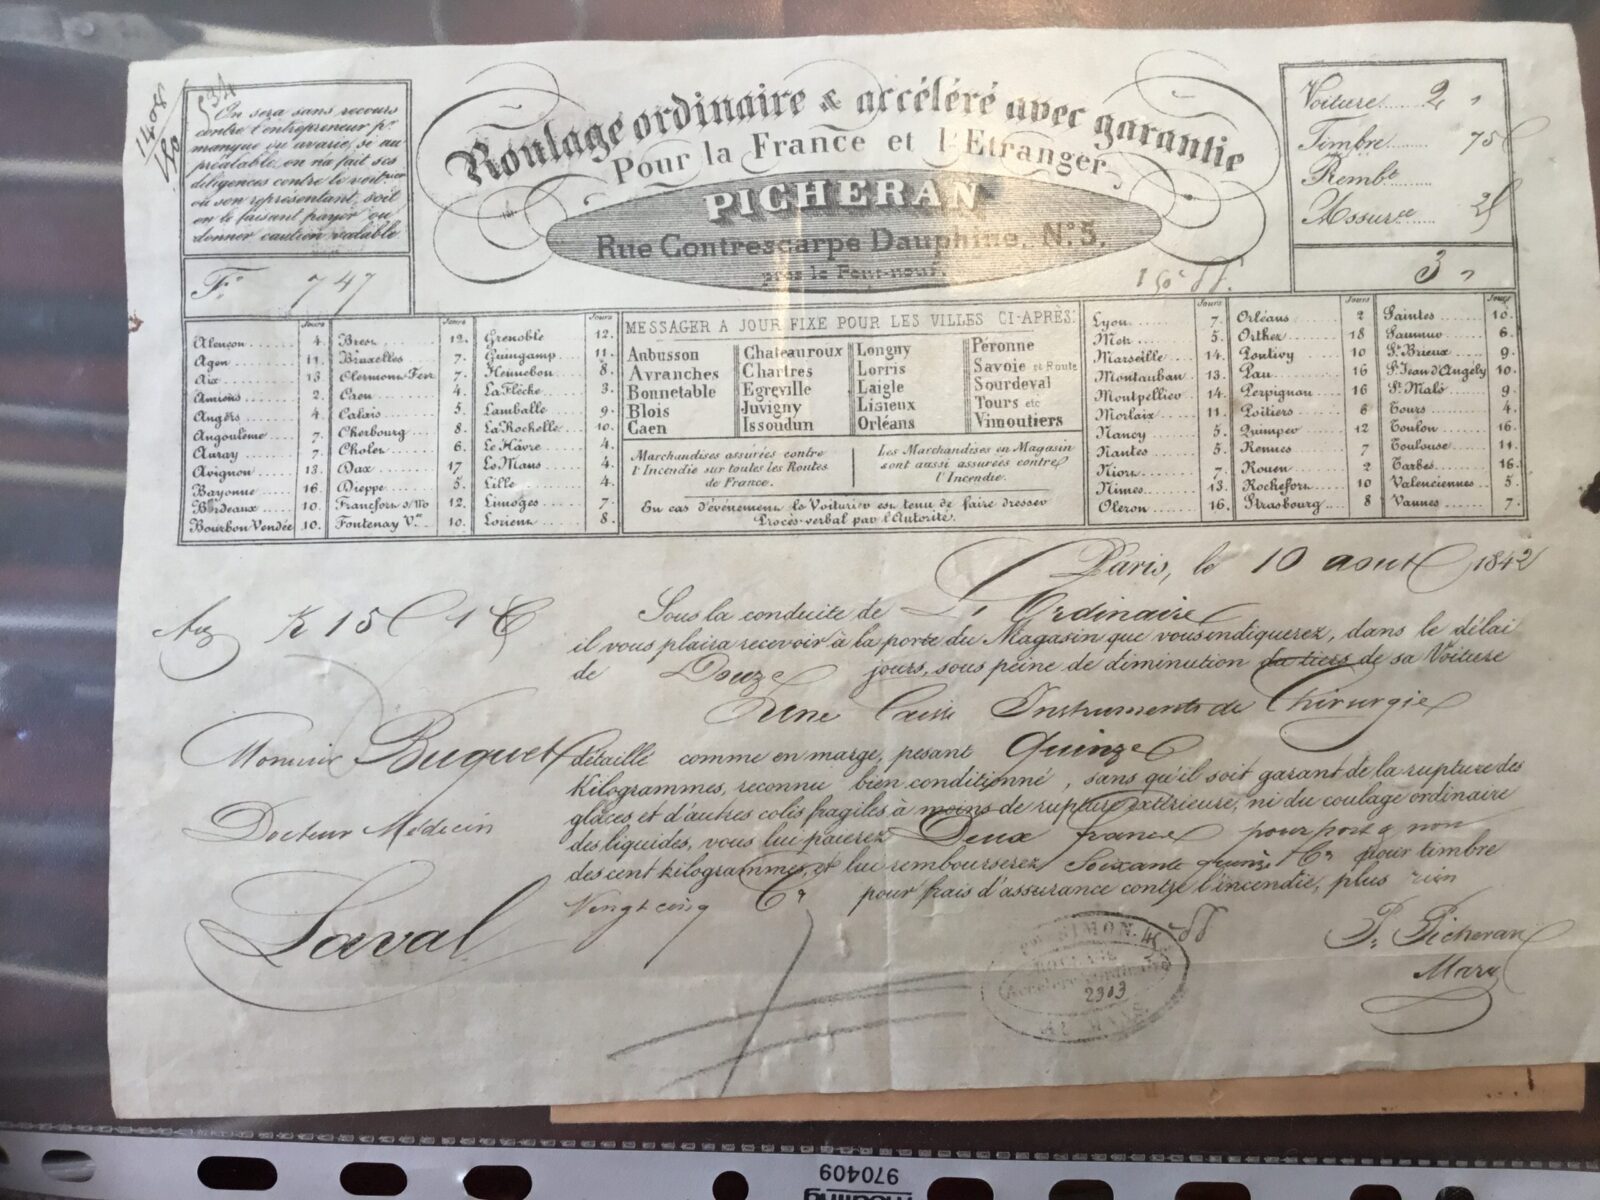 1408
534
On sera sans recours
contre l'entrepreneur pr
manque ou avarie, si au
préalable, on n'a fait ses
diligences contre le voitrier
ou son représentant, soit
en le faisant payer ou
donner caution valable
Fo 747
Roulage ordinaire & accéléré avec garantie
Pour la France et l'Etranger
PICHERAN
Rue Contrescarpe Dauphine, No 5.
près le Pont-neuf.
Voiture 2 "
Timbre 75 C
Rembt
Assurce 25
3 "
Jours
Alençon 4.
Agen 11.
Aix 13.
Amiens 2.
Angers 4.
Angoulême 7.
Auray 7.
Avignon 13.
Bayonne 16.
Bordeaux 10.
Bourbon Vendée 10.
Jours
Brest 12.
Bruxelles 7.
Clermont Fer 7.
Caen 4.
Calais 5.
Cherbourg 8.
Cholet 6.
Dax 17
Dieppe 5.
Francfort s/Mo 12.
Fontenay Vee 10.
Jours
Grenoble 12.
Guingamp 11.
Hennebon 8.
La Flèche 3.
Lamballe 9.
La Rochelle 10.
Le Hâvre 4.
Le Mans 4.
Lille 4.
Limoges 7.
Lorient 8.
MESSAGER A JOUR FIXE POUR LES VILLES CI-APRÈS:
Anbusson
Avranches
Bonnetable
Blois
Caen
Chateauroux
Chartres
Egreville
Juvigny
Issoudun
Longny
Lorris
Laigle
Lisieux
Orléans
Péronne
Savoie et Route
Sourdeval
Tours etc
Vimoutiers
Marchandises assurées contre
l'Incendie sur toutes les Routes
de France.
Les Marchandises en Magasin
sont aussi assurées contre
l'Incendie.
En cas d'événement le Voiturier est tenu de faire dresser
Procès-verbal par l'Autorité.
Jours
Lyon 7.
Metz 5.
Marseille 14.
Montauban 13.
Montpellier 14.
Morlaix 11.
Nancy 5.
Nantes 5.
Niort 7.
Nimes 13.
Oleron 16.
Jours
Orléans 2
Orthez 18
Pontivy 10
Pau 16
Perpignan 16
Poitiers 6
Quimper 12
Rennes 7
Rouen 2
Rochefort 10
Strasbourg 8
Jours
Saintes 10.
Saumur 6.
St Brieux 9.
St Jean d'Angély 10.
St Malo 9.
Tours 4.
Toulon 16.
Toulouse 11.
Tarbes 16.
Valenciennes 5.
Vannes 7.
Paris, le 10 aout 1842
K 15 C 1 C
Sous la conduite de L' Ordinaire
il vous plaira recevoir à la porte du Magasin que vous indiquerez, dans le délai
de Douze jours, sous peine de diminution du tiers de sa Voiture
Une Caisse Instruments de Chirurgie
Monsieur Buquet
Docteur Médecin
Laval
détaillé comme en marge, pesant Quinze
Kilogrammes, reconnu bien conditionné, sans qu'il soit garant de la rupture des
glaces et d'autres colis fragiles à moins de rupture extérieure, ni du coulage ordinaire
des liquides, vous lui paierez Deux francs pour port & non
des cent kilogrammes, et lui rembourserez Soixante quinze Cs pour timbre
Vingt cinq Cs pour frais d'assurance contre l'incendie, plus rien
P. Picheran
SIMON
ROULAGE
Accéléré & Ordinaire
2303
AU MANS
970409